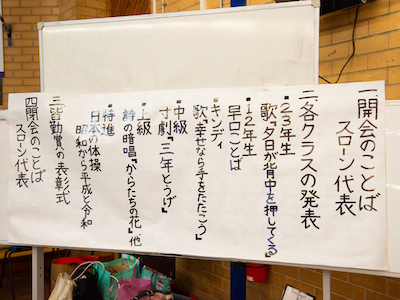 一、開会のことば
スローン代表
二、各クラスの発表
・2・3年生
歌『夕日が背中を押してくる』
・1・2年生
早口ことば
・キンディ
歌『幸せなら手をたたこう』
・中級
寸劇『三年とうげ』
・上級
詩の暗唱『からたちの花』、他
・特進
日本の体操
昭和から平成と令和
三、皆勤賞の表彰式
四、閉会のことば
スローン代表